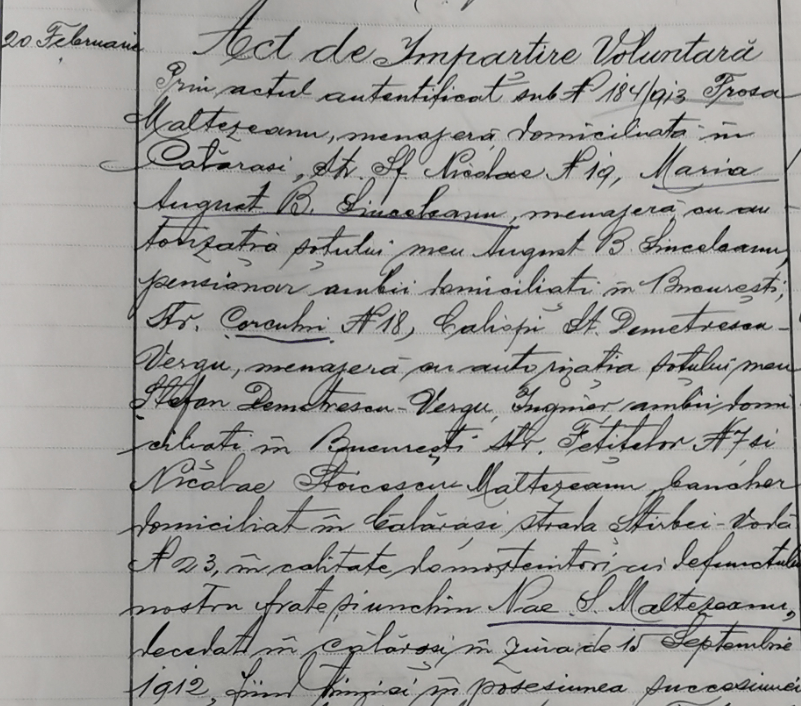 20 Februarie
Act de Impartire Voluntară
Prin actul autentificat sub N 184/913 Frosa
Maltezeanu, menajeră domiciliată în
Călărași, Str. Sf Nicolae N 19, Maria
August B. Linceleanu, menajeră, cu au
torizația soțului meu August B. Linceleanu,
pensionar ambii domiciliați în București,
Str. Corcului N 18, Caliopi St. Demetrescu-
Vergu, menajeră cu autorizația soțului meu
Ștefan Demetrescu-Vergu, Inginer ambii domi
ciliați în București str. Fetițelor N 7 si
Nicolae Stoicescu Maltezeanu, bancher
domiciliat în Călărași strada Știrbei-Vodă
N 23, în calitate de moștenitori ai defunctului
nostru frate și unchiu Nae S. Maltezeanu,
decedat în călărași în ziua de 15 Septembrie
1912, fiind trimiși în posesiunea succesiunei